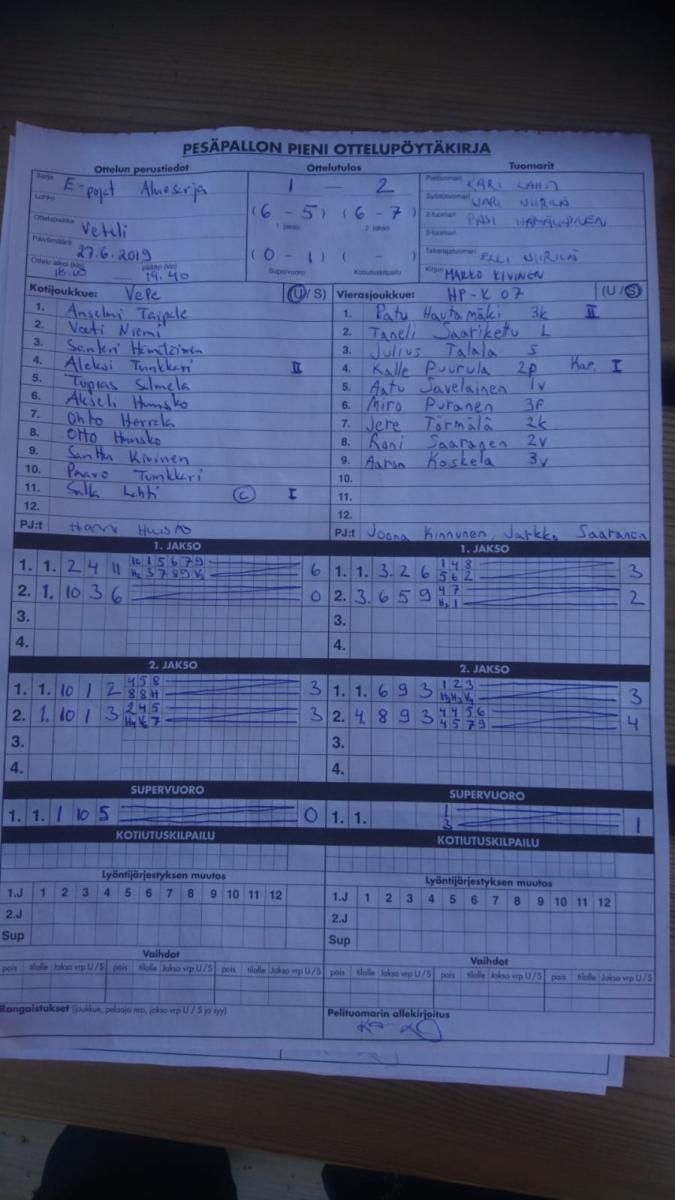 PESÄPALLON PIENI OTTELUPÖYTÄKIRJA
Ottelun perustiedot Ottelutulos Tuomarit
Sarja E-pojat Aluesarja
1 – 2
Pelituomari KARI LAHTI
Lohko
Syöttötuomari JARI NIIRILÄ
(6 - 5) (6 - 7)
1. jakso 2. jakso
2-tuomari PASI HÄMÄLÄINEN
Ottelupaikka Veteli
3-tuomari
Päivämäärä 27.6.2019
(0 - 1) ( - )
Takarajatuomari ELLI NIIRILÄ
Ottelu alkoi (klo) päättyi (klo) 19.40
Supervuoro Kotiutuskilpailu
Kirjuri MARKO KIVINEN
Kotijoukkue: VePe (U/S)
1. Anselmi Taipale
2. Veeti Niemi
3. Santeri
4. Aleksi Tunkkari II
5. Tuomas Salmela
6. Akseli Huusko
7. Ohto Herrala
8. Otto Huusko
9. Santtu Kivinen
10. Paavo Tunkkari
11. Salla Lahti C I
12.
PJ:t Harri
Vierasjoukkue: HP-K 07 (U/S)
1. Patu Hautamäki 3k II
2. Taneli Saarikettu L
3. Julius Talala S
4. Kalle Puurula 2p Kap. I
5. Aatu Savelainen 1v
6. Miro Puranen 3p
7. Jere Törmälä 2k
8. Roni Saaranen 2v
9. Aaron Koskela 3v
10.
11.
12.
PJ:t Joona Kinnunen, Jarkko Saaranen
1. JAKSO
1. 1. 2 4 11 10 1 5 6 7 9 6
H2 3 7 8 9 V3
2. 1. 10 3 6 0
3.
4.
1. JAKSO
1. 1. 3. 2 6 1 4 8 3
5 6 2
2. 3. 6 5 9 4 7 2
H2 1
3.
4.
2. JAKSO
1. 1. 10 1 2 4 5 8 3
8 8 H
2. 1. 10 1 3 2 4 5 3
H4 V6 7
3.
4.
2. JAKSO
1. 1. 6 9 3 1 2 3 3
2. 4. 8 9 3 4 4 5 6 4
4 5 7 9
3.
4.
SUPERVUORO
1. 1. 1 10 5 0
SUPERVUORO
1. 1. 1 1
3
KOTIUTUSKILPAILU
KOTIUTUSKILPAILU
Lyöntijärjestyksen muutos
1.J 1 2 3 4 5 6 7 8 9 10 11 12
2.J
Sup
Lyöntijärjestyksen muutos
1.J 1 2 3 4 5 6 7 8 9 10 11 12
2.J
Sup
Vaihdot
pois tilalle Jakso vrp U/S pois tilalle Jakso vrp U/S pois tilalle Jakso vrp U/S
Vaihdot
pois tilalle Jakso vrp U/S pois tilalle Jakso vrp U/S pois tilalle Jakso vrp U/S
Rangaistukset (joukkue, pelaaja nro, jakso vrp U / S ja syy)
Pelituomarin allekirjoitus